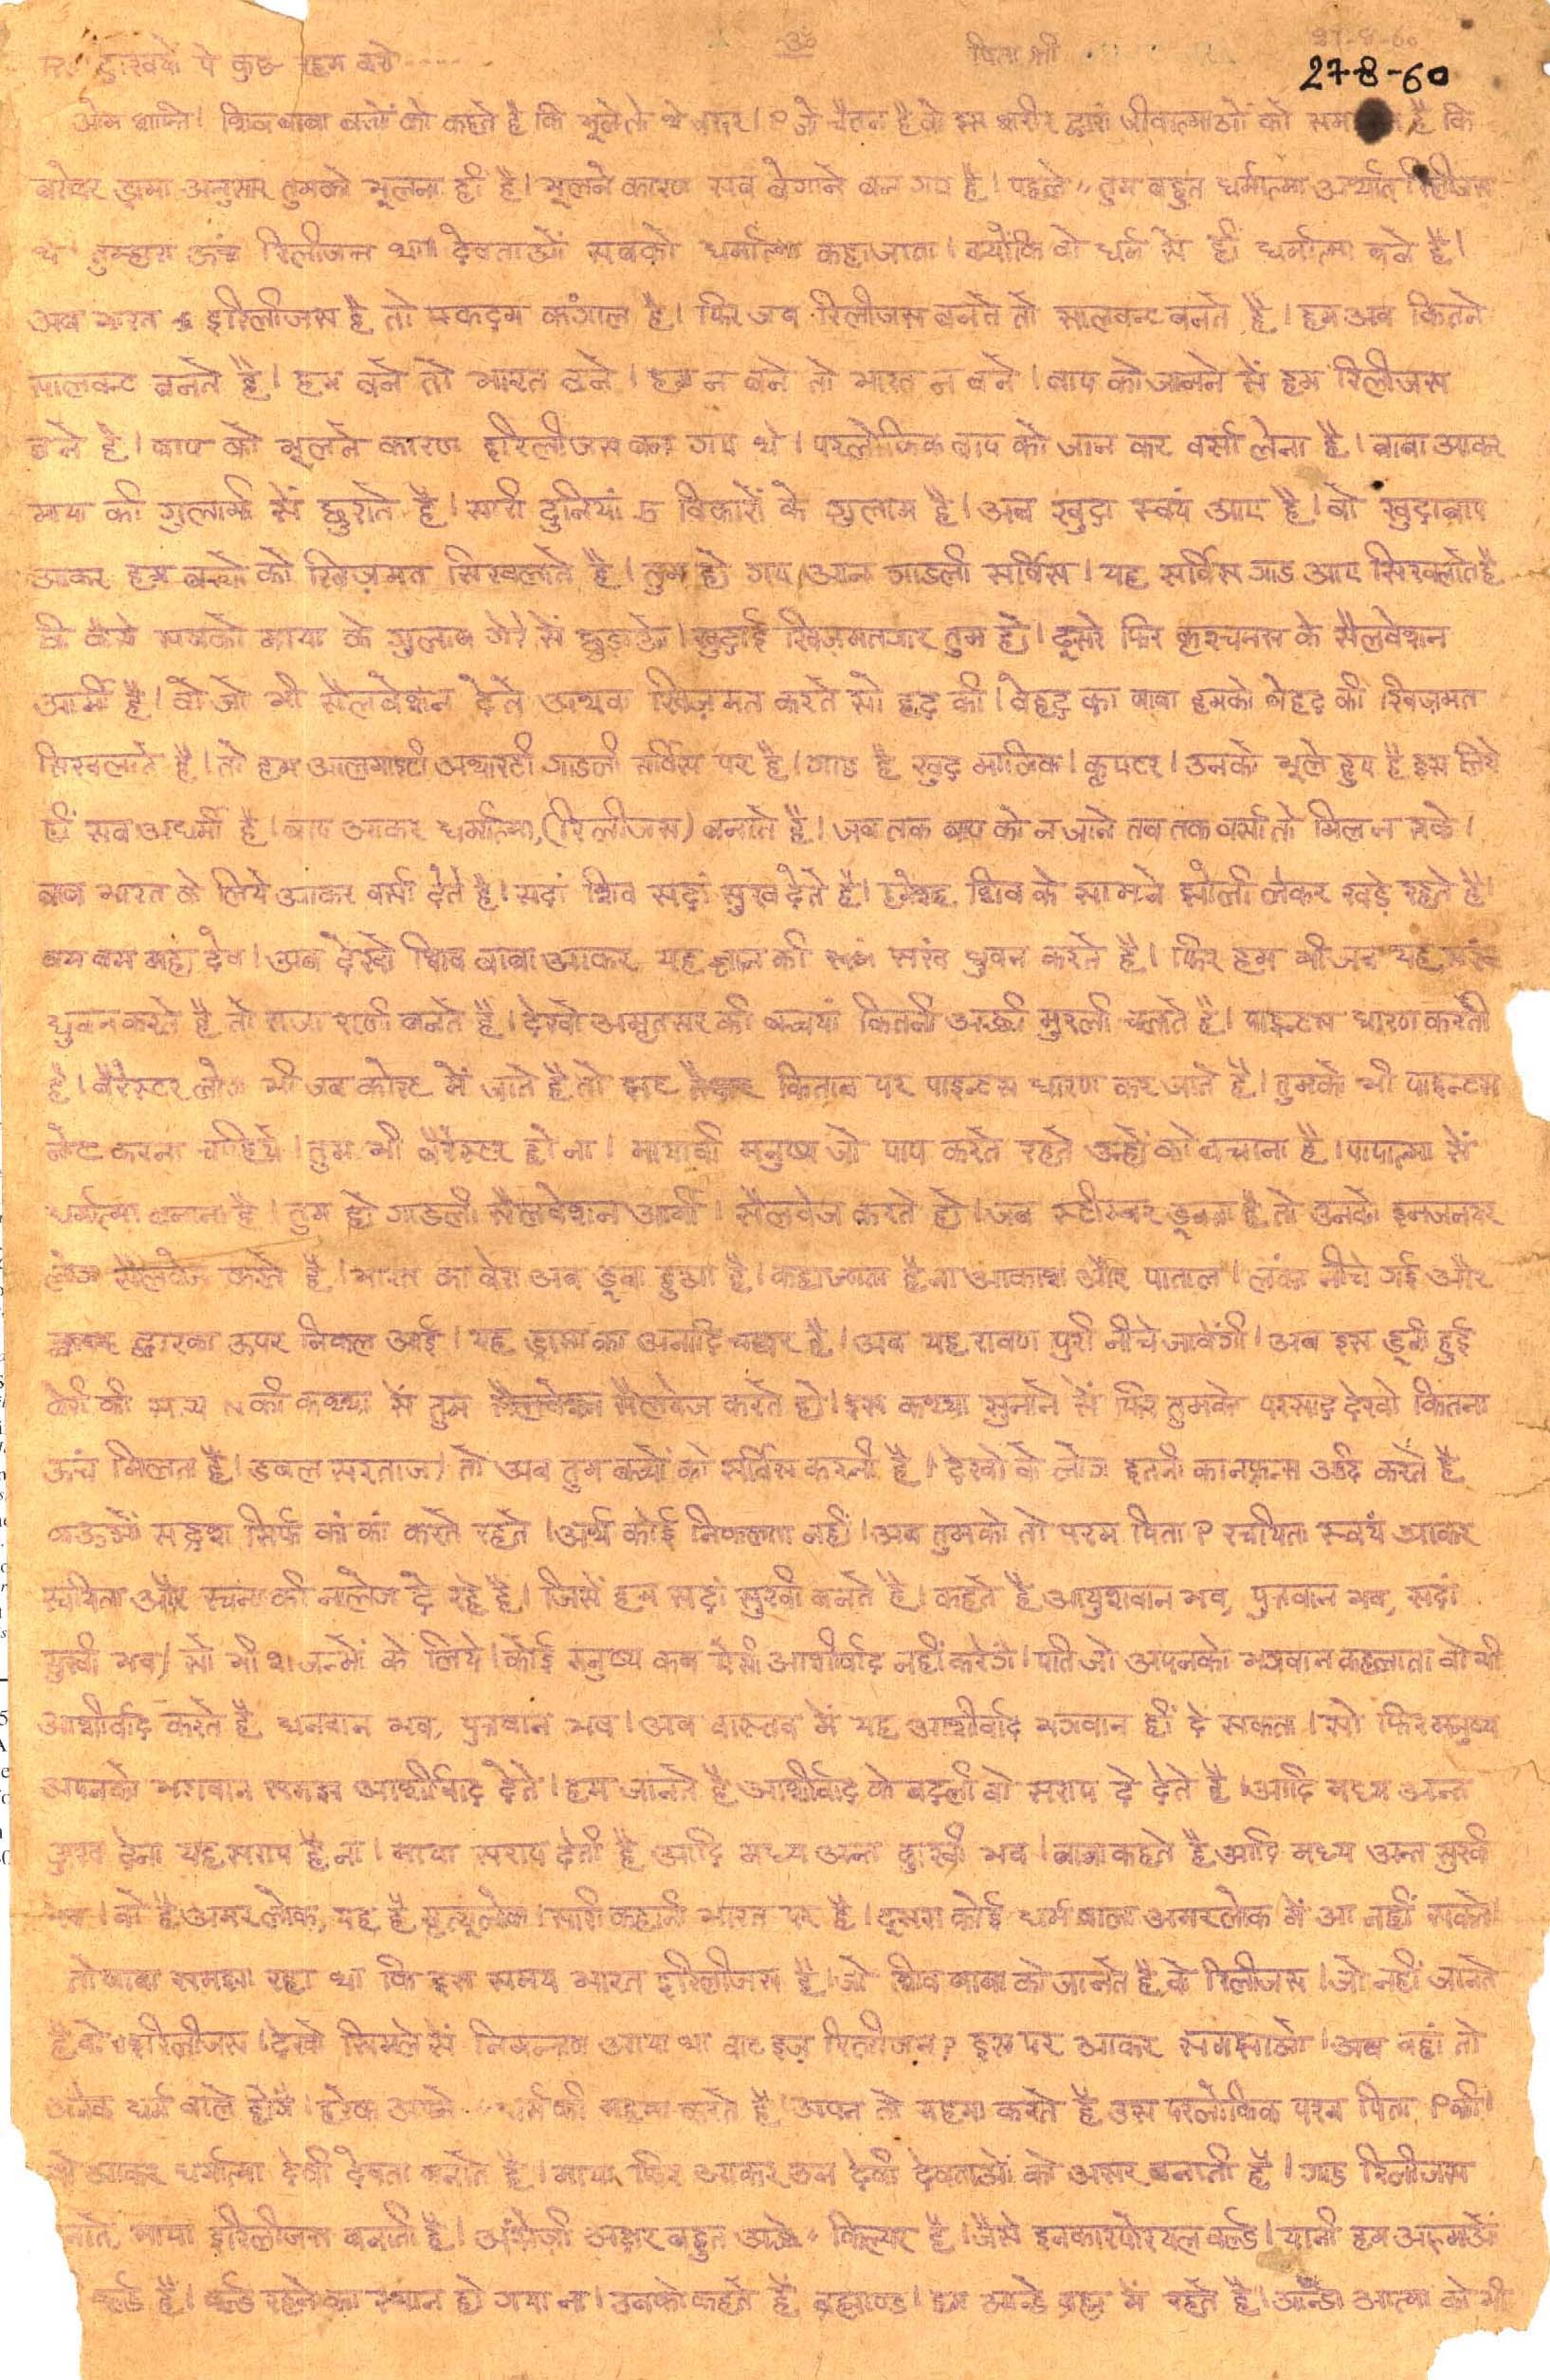 दुःखयों पे कुछ रहम करो ॐ पिता श्री 27-8-60
27-8-60
ओम शान्ति। शिव बाबा बच्चों को कहते है कि भूले तो थे बाप। P जो चैतन है वो इस शरीर द्वारा जीवात्माओं को है कि
बरोबर ड्रामा अनुसार तुमको भूलना ही है। भूलने कारण सब बेगाने बन गए है। पहले " तुम बहुत धर्मात्मा अर्थात रिलीजस
थे। तुम्हारा ऊंच रिलीजन था। देवताओं सबको धर्मात्मा कहा जाता। क्योंकि वो धर्म से ही धर्मात्मा बने है।
अब भारत इरिलीजस है तो एकदम कंगाल है। फिर जब रिलीजस बनते तो सालवन्ट बनते है। हम अब कितने
सालवन्ट बनते है। हम बने तो भारत बने। हम न बने तो भारत न बने। बाप को जानने सें हम रिलीजस
बने है। बाप को भूलने कारण इरिलीजस बन गए थे। परलोकिक बाप को जान कर वर्सा लेना है। बाबा आकर
माया की गुलामी सें छुराते है। सारी दुनियां 5 विकारों के गुलाम है। अब खुदा स्वयं आए है। वो खुदा बाप
आकर हम बच्चों को खिज़मत सिखलाते है। तुम हो गए आन गाडली सर्विस। यह सर्विस गाड आए सिखलाते है
कि कैसे सबको माया के गुलाब सें छुड़ाओ। खुदाई खिज़मतगार तुम हो। दूसरे फिर कृश्चनस के सैलवेशन
आर्मी है। वो जो भी सैलवेशन देते अथवा खिज़मत करते सो हद की। बेहद का बाबा हमको बेहद की खिज़मत
सिखलाते है। तो हम आलमाइटी अथारटी गाडली सर्विस पर है। गाड है खुद मालिक। कृएटर। उनको भूले हुए है इस लिये
ही सब अधर्मी है। बाप आकर धर्मात्मा, (रिलीजस) बनाते है। जब तक बाप को न जाने तब तक वर्सा तो मिल न सके।
बाबा भारत के लिये आकर वर्सा देते है। सदां शिव सदां सुख देते है। शिव के सामने झोली लेकर खड़े रहते है।
बम बम महा देव। अब देखो शिव बाबा आकर यह ज्ञान की संख धुवन करते है। फिर हम भी जब यह संख
धुवन करते है तो राजा राणी बनते है। देखो अमृतसर की बच्चयां कितनी अच्छी मुरली चलाते है। पाइन्टस धारण करती
है। बैरेस्टर लोग भी जब कोरट में जाते है तो झट किताब पर पाइन्टस धारण कर जाते है। तुमको भी पाइन्टस
नोट करना चाहिये। तुम भी बैरेस्टर हो ना। मायावी मनुष्य जो पाप करते रहते उन्हों को बचाना है। पापात्मा सें
धर्मात्मा बनाना है। तुम हो गाडली सैलवेशन आर्मी। सैलवेज करते हो। जब स्टीम्बर डूबता है तो उनको इनजनयर
लोग सैलवेज करते है। भारत का बेरा अब डूबा हुआ है। कहा जाता है ना आकाश और पाताल। लंका नीचे गई और
द्वारका ऊपर निकल आई। यह ड्रामा का अनादि चक्कर है। अब यह रावण पुरी नीचे जावेंगी। अब इस डूबी हुई
बेरी की सत्य N की कथ्था सें तुम सैलवेज करते हो। इस कथ्था सुनाने सें फिर तुमको परसाद देखो कितना
ऊंच मिलता है। डबल सरताज) तो अब तुम बच्चों को सर्विस करनी है। देखो वे लोग इतनी कानफ्रन्स आदि करते है
कऊओं सदृश सिर्फ कां कां करते रहते। अर्थ कोई निकलता नहीं। अब तुमको तो परम पिता P रचयिता स्वयं आकर
रचयिता और रचना की नालेज दे रहे है। जिसें हम सदां सुखी बनते है। कहते है आयुशवान भव, पुत्रवान भव, सदां
सुखी भव) सो भी २१ जन्मों के लिये। कोई मनुष्य कब ऐसी आशीर्वाद नहीं करेंगे। पति जो अपनको भगवान कहलाता वो भी
आशीर्वाद करते है धनवान भव, पुत्रवान भव। अब वास्तव में यह आशीर्वाद भगवान ही दे सकता। सो फिर मनुष्य
अपनको भगवान समझ आशीर्वाद देते। हम जानते है आशीर्वाद के बदली वो सराप दे देते है। आदि मध्य अन्त
दुःख देना यह सराप है ना। माया सराप देती है आदि मध्य अन्त दुःखी भव। बाबा कहते है आदि मध्य अन्त सुखी
भव। वो है अमरलोक, यह है मृत्यूलोक। सारी कहानी भारत पर है। दूसरा कोई धर्म वाला अमरलोक में आ नहीं सकते।
तो बाबा समझा रहा था कि इस समय भारत इरिलीजस है। जो शिव बाबा को जानते है वे रिलीजस। जो नहीं जानते
है वो इरिलीजस। देखो सिमले सें निमन्त्रण आया था वाट इज़ रिलीजन? इस पर आकर समझाओ। अब वहां तो
अनेक धर्म वाले होंगे। हरेक अपने " धर्म की महमा करते है। अपन तो महमा करते है उस परलोकिक परम पिता P की।
जो आकर धर्मात्मा देवी देवता बनाते है। माया फिर आकर उन देवी देवताओं को असर बनाती है। गाड रिलीजस
बनाते, माया इरिलीजस बनाती है। अंग्रेज़ी अक्षर बहुत अच्छे " किल्यर है। जैसे इनकारपोरयल वर्ल्ड। यानी हम आत्माओं
वर्ल्ड है। वर्ल्ड रहने का स्थान हो गया ना। उनको कहते है ब्रह्माण्ड। हम अन्डे ब्रह्म में रहते है। अन्डा आत्मा को भी